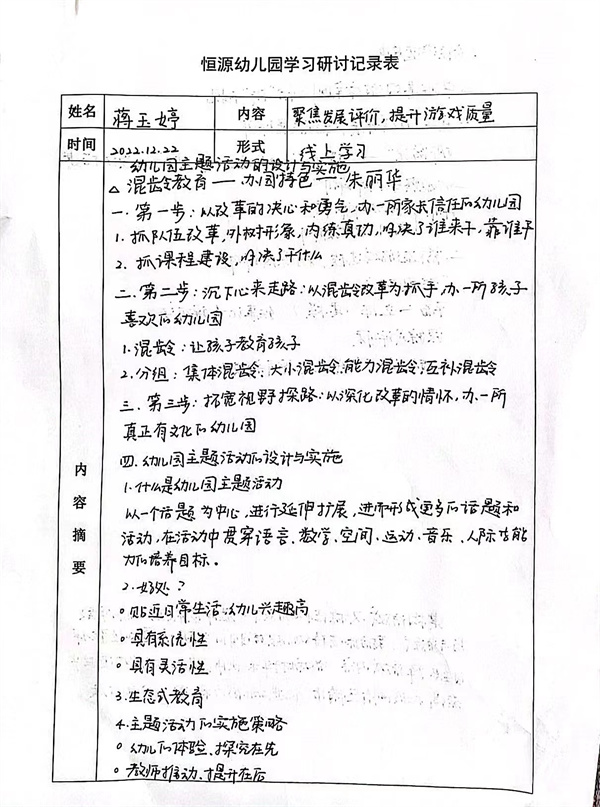 恒源幼儿园学习研讨记录表
姓名 蒋玉婷 内容 聚焦发展评价,提升游戏质量
时间 2022.12.22 形式 线上学习
幼儿园主题活动的设计与实施
△ 混龄教育——办园特色——朱丽华
一.第一步:以改革的决心和勇气,办一所家长信任的幼儿园
1.抓队伍改革,外树形象,内练真功,解决了谁来干,靠谁干
2.抓课程建设,解决了干什么
二.第二步:沉下心来走路:以混龄改革为抓手,办一所孩子
喜欢的幼儿园
1.混龄:让孩子教育孩子
2.分组:集体混龄、大小混龄、能力混龄、互补混龄
三.第三步:拓宽视野探路:以深化改革的情怀,办一所
真正有文化的幼儿园
四.幼儿园主题活动的设计与实施
1.什么是幼儿园主题活动
以一个话题为中心,进行延伸扩展,进而形成更多的话题和
活动,在活动中贯穿语言、数学、空间、运动、音乐、人际等能
力的培养目标。
2.好处?
○贴近日常生活,幼儿兴趣高
○具有系统性
○具有灵活性
3.生态式教育
4.主题活动的实施策略
○幼儿的体验、探究在先
○教师推动、提升在后
内容摘要